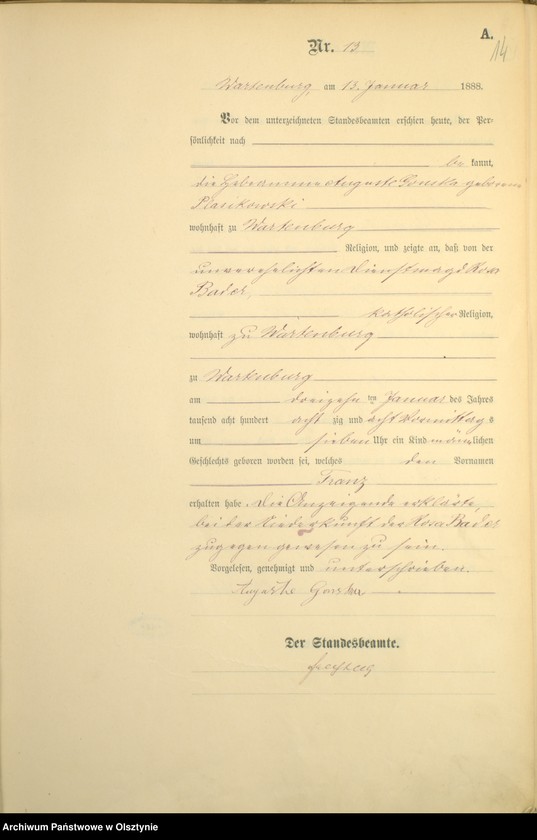 A.
14
Nr. 13
Wartenburg, am 13. Januar 1888.
Vor dem unterzeichneten Standesbeamten erschien heute, der Per-
sönlichkeit nach
be kannt,
die Hebeamme Auguste geborene
wohnhaft zu Wartenburg
Religion, und zeigte an, daß von der
unverehelichten Dienstmagd Rosa
Bader,
katholischer Religion,
wohnhaft zu Wartenburg
zu Wartenburg
am dreizehn ten Januar des Jahres
tausend acht hundert acht zig und acht Vormittag s
um sieben Uhr ein Kind männlichen
Geschlechts geboren worden sei, welches den Vornamen
Franz
erhalten habe. Die Anzeigende erklärte,
bei der Niederkunft der Rosa Bader
zugegen gewesen zu sein.
Vorgelesen, genehmigt und unterschrieben.
Auguste
Der Standesbeamte.
Archiwum Państwowe w Olsztynie